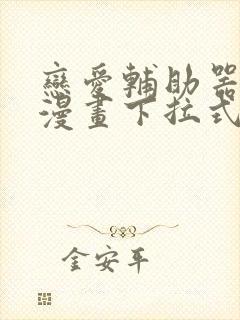 戀愛輔助器
漫畫下拉式
金安平